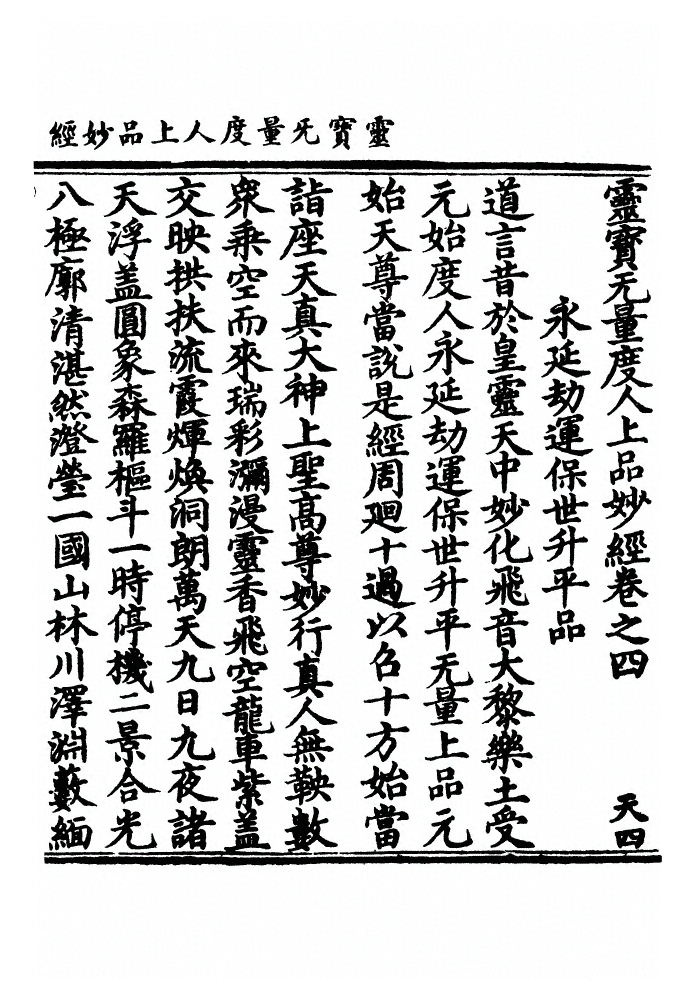 靈寶无量度人上品妙經
靈寶无量度人上品妙經卷之四 天四
永延劫運保世升平品
道言昔於皇靈天中妙化飛音大黎樂土受
元始度人永延劫運保世升平无量上品元
始天尊當說是經周迴十過以召十方始當
詣座天真大神上聖高尊妙行真人無鞅數
衆乘空而來瑞彩瀰漫靈香飛空龍車紫盖
交映拱扶流霞煇煥洞朗萬天九日九夜諸
天浮盖圓象森羅樞斗一時停機二景合光
八極廓清湛然澄瑩一國山林川澤淵藪緬